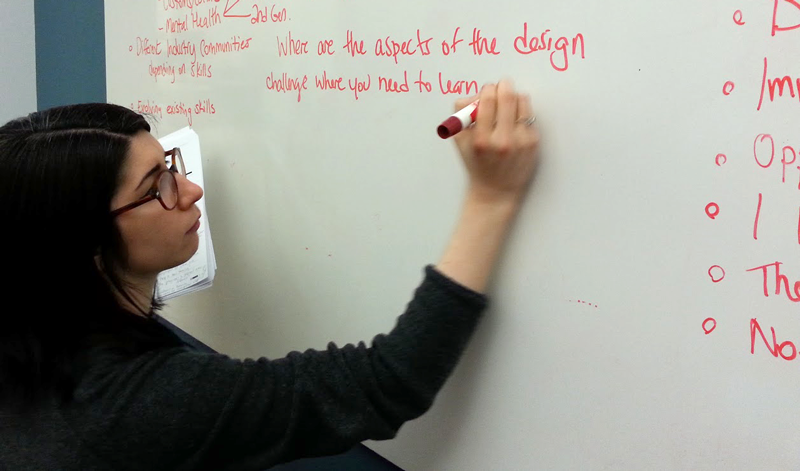 - Mental Health
2nd Gen.
Different Industry Communities
depending on skills
Evolving existing skills
Where are the aspects of the design
challenge where you need to learn
D
Im
Opp
I
The
No